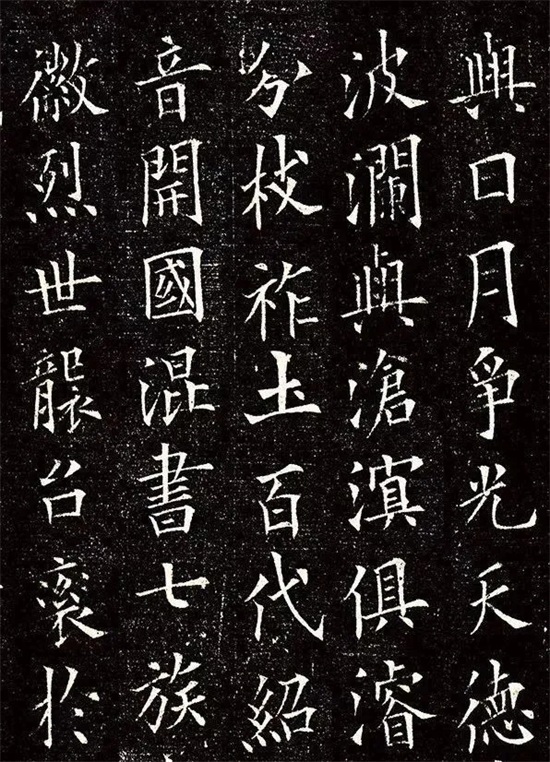 與日月爭光天德
波瀾與滄溟俱濬
分枝祚土百代紹
音開國混書七族
徽烈世襲台衮於